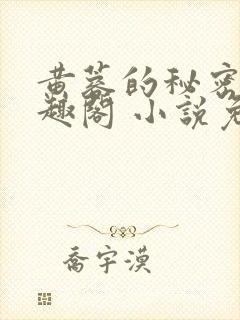 黄蓉的秘密
趣阁 小説免
喬宇漠